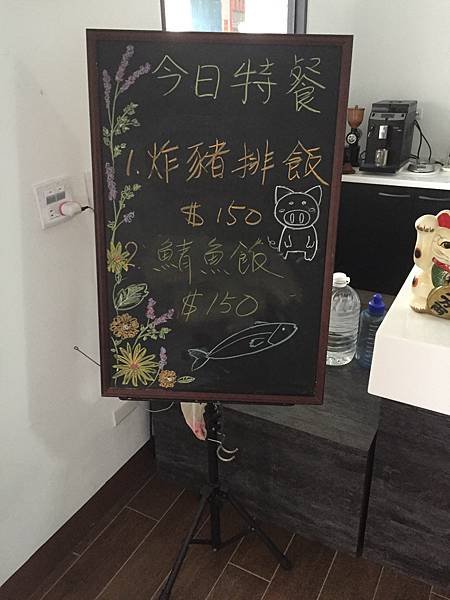 今日特餐
1.炸豬排飯
$150
2.鯖魚飯
$150